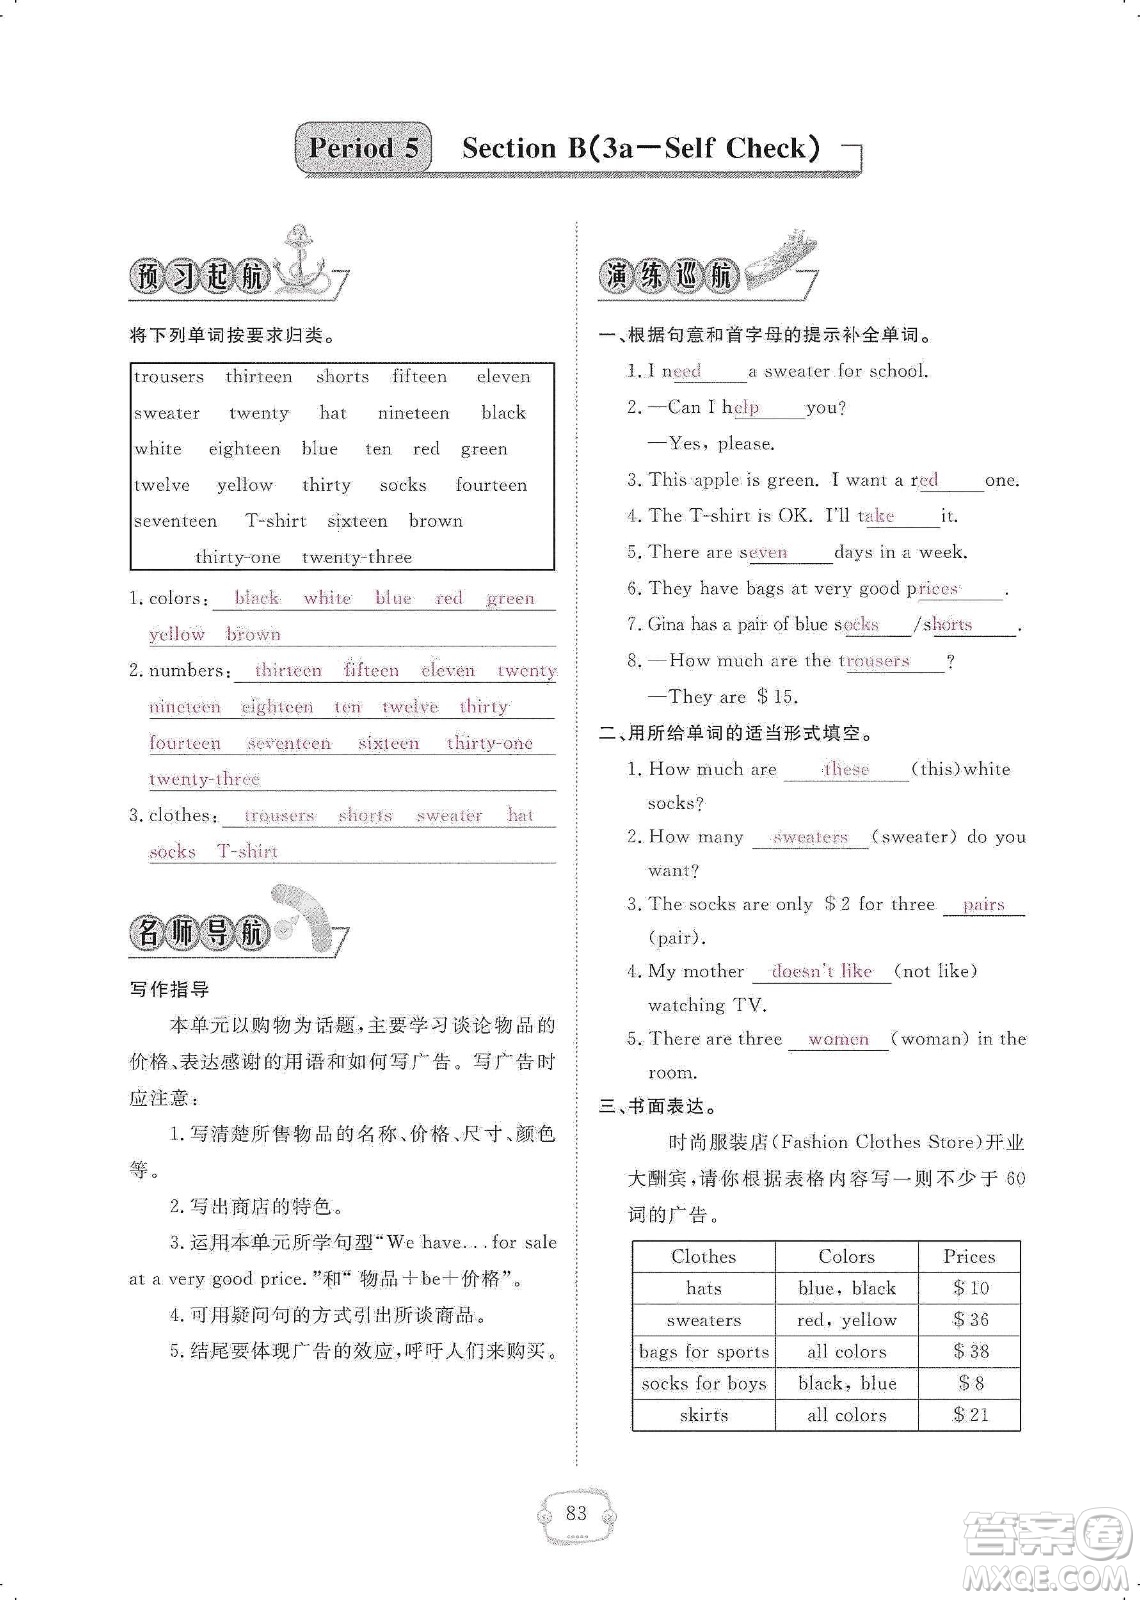 Period 5 Section B(3a—Self Check)
预习起航
将下列单词按要求归类。
trousers thirteen shorts fifteen eleven
sweater twenty hat nineteen black
white eighteen blue ten red green
twelve yellow thirty socks fourteen
seventeen T-shirt sixteen brown
thirty-one twenty-three
1. colors: black white blue red green
yellow brown
2. numbers: thirteen fifteen eleven twenty
nineteen eighteen ten twelve thirty
fourteen seventeen sixteen thirty-one
twenty-three
3. clothes: trousers shorts sweater hat
socks T-shirt
名师导航
写作指导
本单元以购物为话题,主要学习谈论物品的
价格、表达感谢的用语和如何写广告。写广告时
应注意:
1. 写清楚所售物品的名称、价格、尺寸、颜色
等。
2. 写出商店的特色。
3. 运用本单元所学句型“We have...for sale
at a very good price.”和“ 物品+be+价格”。
4. 可用疑问句的方式引出所谈商品。
5. 结尾要体现广告的效应,呼吁人们来购买。
演练巡航
一、根据句意和首字母的提示补全单词。
1. I need a sweater for school.
2. —Can I help you?
—Yes, please.
3. This apple is green. I want a red one.
4. The T-shirt is OK. I'll take it.
5. There are seven days in a week.
6. They have bags at very good prices .
7. Gina has a pair of blue socks /shorts .
8. —How much are the trousers ?
—They are $15.
二、用所给单词的适当形式填空。
1. How much are these (this)white
socks?
2. How many sweaters (sweater) do you
want?
3. The socks are only $2 for three pairs
(pair).
4. My mother doesn't like (not like)
watching TV.
5. There are three women (woman) in the
room.
三、书面表达。
时尚服装店(Fashion Clothes Store)开业
大酬宾,请你根据表格内容写一则不少于 60
词的广告。
Clothes Colors Prices
hats blue, black $10
sweaters red, yellow $36
bags for sports all colors $38
socks for boys black, blue $8
skirts all colors $21
83
答案圈
MXQE.COM